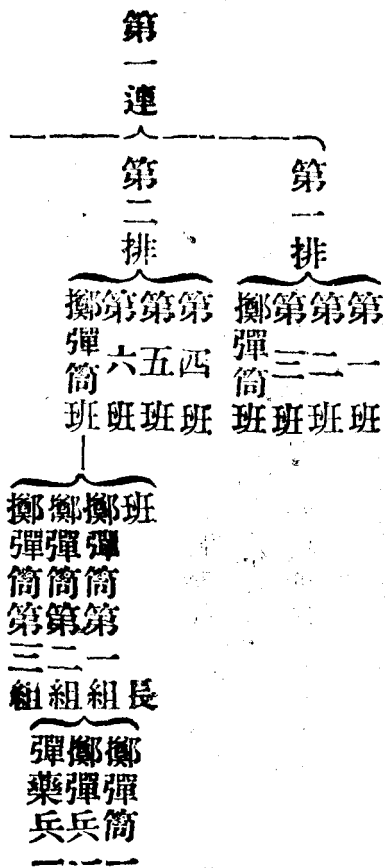 第一連
第一排
第一班
第二班
第三班
擲彈筒班
第二排
第四班
第五班
第六班
擲彈筒班
班長
擲彈筒第一組
擲彈筒第二組
擲彈筒第三組
擲彈筒
擲彈兵
彈藥兵